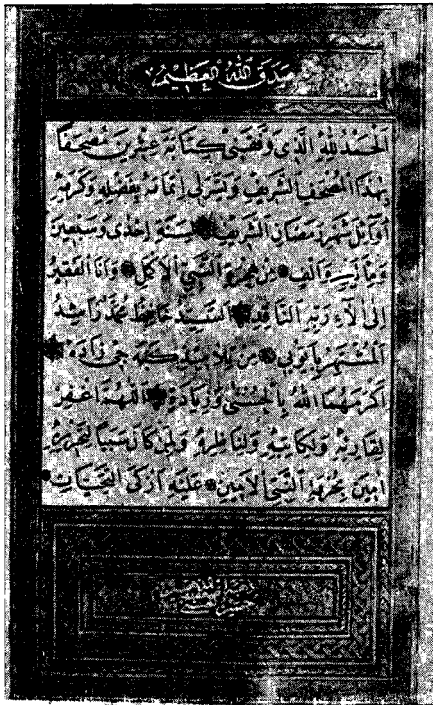 صَدَقَ اللهُ الْعَظِيْمُ
اَلْحَمْدُ لِلّٰهِ الَّذِى وَفَّقَنِى كِتَابَةَ عِشْرِينَ مُصْحَفًا
بِهٰذَا الْمُصْحَفِ الشَّرِيفِ وَيَسَّرَلِى اِتْمَامَهُ بِفَضْلِهِ وَكَرَمِهِ
اَوَائِلَ شَهْرِ رَمَضَانَ الشَّرِيفِ لِسَنَةِ اِحْدٰى وَسَبْعِينَ
وَمِأَتَيْنِ وَاَلْفٍ مِنْ هِجْرَةِ النَّبِىِّ الْاَكْمَلِ وَاَنَا الْفَقِيرُ
اِلٰى اٰلَاءِ رَبِّهِ السَّيِّدُ حَافِظْ مُحَمَّدْ رَاشِدْ
الْمُشْتَهِرُ بِاَيُّوبِى مِنْ تَلَامِيذِ زَادَه
اَكْرَمَهُمَا اللهُ بِالْحُسْنٰى وَزِيَادَةٍ اَللّٰهُمَّ اغْفِرْ
لِقَارِئِهِ وَلِكَاتِبِهِ وَلِنَاظِرِهِ وَلِمَنْ كَانَ سَبَبًا لِتَحْرِيرِهِ
اٰمِينَ بِحُرْمَةِ النَّبِىِّ الْاَمِينِ عَلَيْهِ اَزْكَى التَّحِيَّاتِ